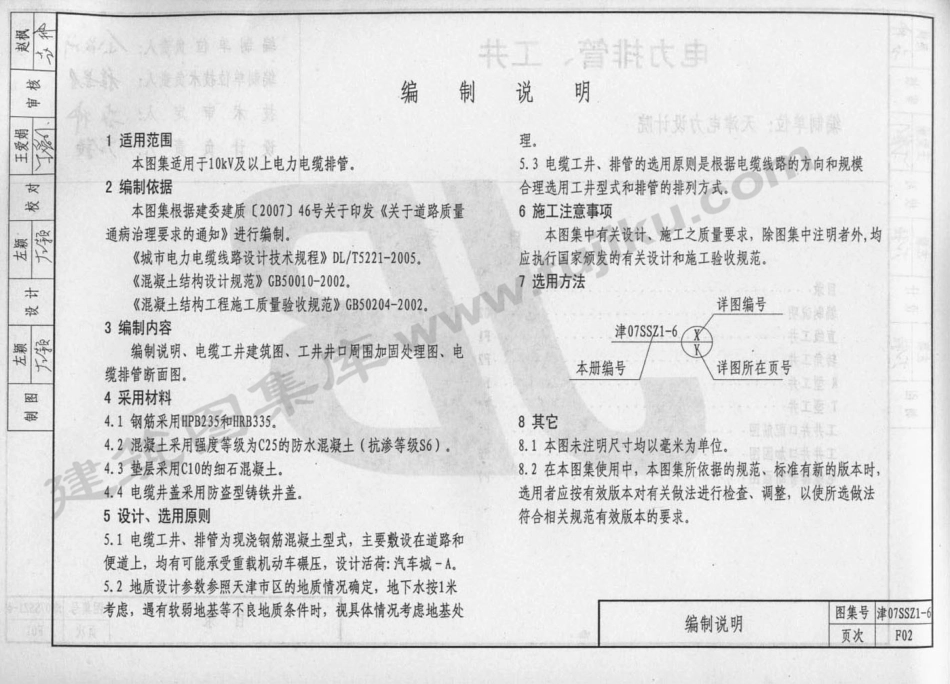 编 制 说 明
1 适用范围
本图集适用于10kV及以上电力电缆排管。
2 编制依据
本图集根据建委建质〔2007〕46号关于印发《关于道路质量
通病治理要求的通知》进行编制。
《城市电力电缆线路设计技术规程》DL/T5221-2005。
《混凝土结构设计规范》GB50010-2002。
《混凝土结构工程施工质量验收规范》GB50204-2002。
3 编制内容
编制说明、电缆工井建筑图、工井井口周围加固处理图、电
缆排管断面图。
4 采用材料
4.1 钢筋采用HPB235和HRB335。
4.2 混凝土采用强度等级为C25的防水混凝土(抗渗等级S6)。
4.3 垫层采用C10的细石混凝土。
4.4 电缆井盖采用防盗型铸铁井盖。
5 设计、选用原则
5.1 电缆工井、排管为现浇钢筋混凝土型式,主要敷设在道路和
便道上,均有可能承受重载机动车碾压,设计活荷:汽车城-A。
5.2 地质设计参数参照天津市区的地质情况确定,地下水按1米
考虑,遇有软弱地基等不良地质条件时,视具体情况考虑地基处
理。
5.3 电缆工井、排管的选用原则是根据电缆线路的方向和规模
合理选用工井型式和排管的排列方式。
6 施工注意事项
本图集中有关设计、施工之质量要求,除图集中注明者外,均
应执行国家颁发的有关设计和施工验收规范。
7 选用方法
详图编号
津07SSZ1-6
X
Y
本册编号
详图所在页号
8 其它
8.1 本图未注明尺寸均以毫米为单位。
8.2 在本图集使用中,本图集所依据的规范、标准有新的版本时,
选用者应按有效版本对有关做法进行检查、调整,以使所选做法
符合相关规范有效版本的要求。
编制说明
图集号 津07SSZ1-6
页次 F02
审核 赵枫
校对 王爱娟
设计 左颖
制图 左颖
建筑图集库 www.tujiku.com